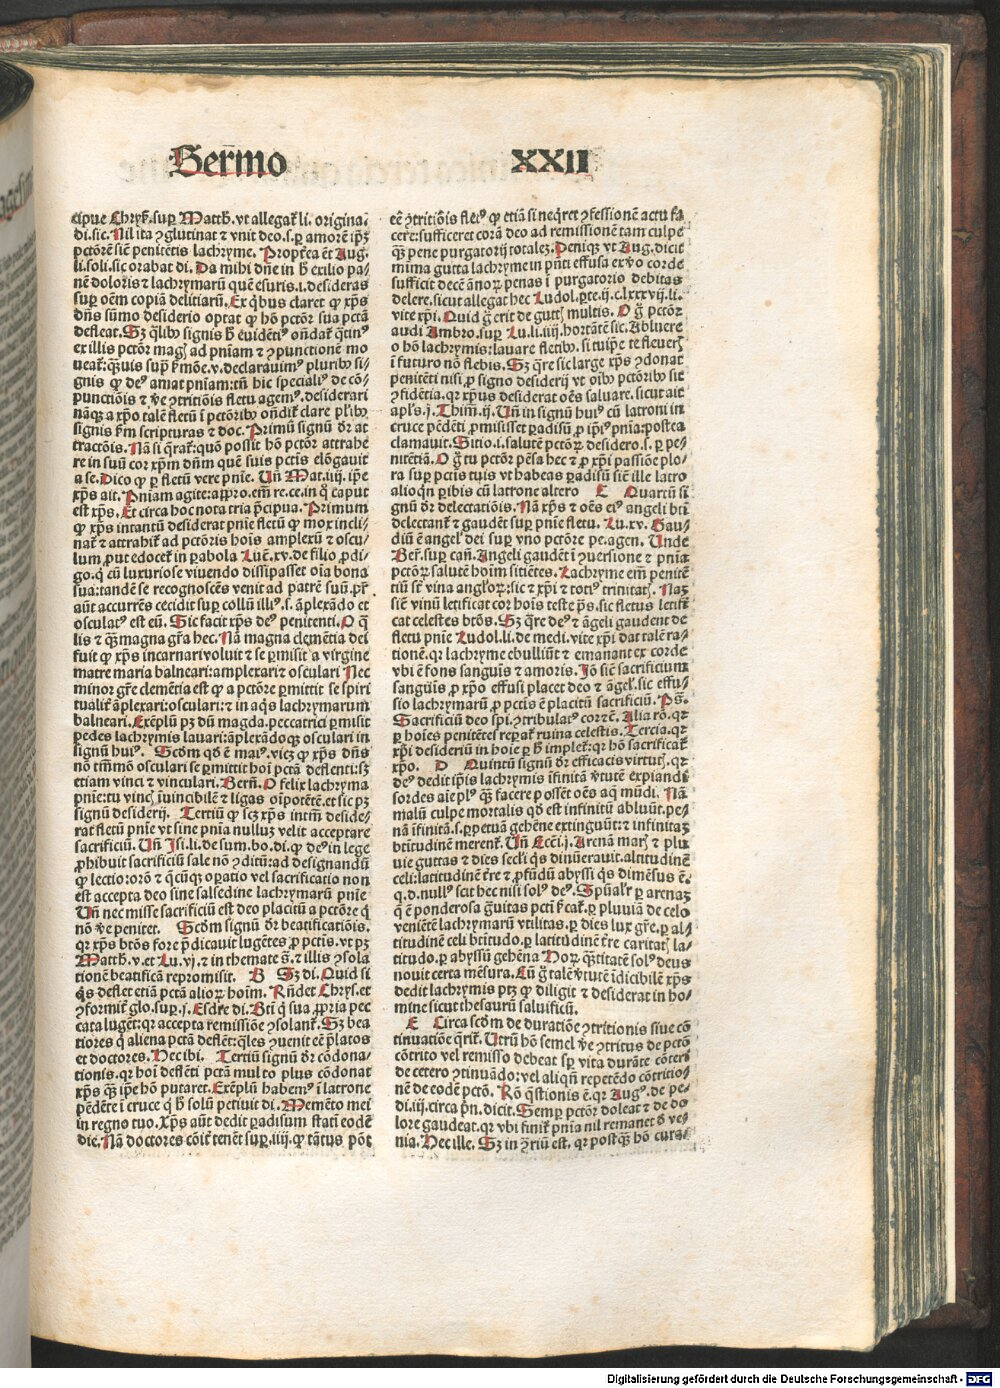 Sermo XXII
cipue Chrys. sup Matth. vt allegat li. origina/
di. sic. Nil ita ꝯglutinat ⁊ vnit deo. s. ꝑ amorē ip̄ꝫ
pctōrē siē penitētis lachryme. Propt̄ea ēt Aug.
li. soli. sic orabat di. Da mihi dn̄e in ħ exilio pa/
nē doloris ⁊ lachrymarū quē esuris. i. desideras
sup oēm copiā delitiarū. Ex qͥbus claret ꝙ xp̄s
dn̄s sūmo desiderio optat ꝙ hō pctōr sua pctā
defleat. Sꝫ qͥbꝫ signis ħ euidētiꝰ on̄dat̄ qͣtinꝰ
ex illis pctōr magꝭ ad pn̄iam ⁊ ꝯpunctionē mo
ueat̄: qͣuis sup̄ s̄mōe. v. declarauimꝰ pluribꝫ si/
gnis ꝙ deꝰ amat pn̄iam: tn̄ hic specialiꝰ de cō/
punctiōis ⁊ v̄e ꝯtritiōis fletu agemꝰ. desiderari
nāqꝫ a xp̄o talē fletū ī pctōribꝫ on̄dit̄ clare pl̄ibꝫ
signis s̄m scripturas ⁊ doc. Primū signū dr̄ at
tractōis. Nā si qͣrat̄: quō possit hō pctōr attrahe
re in suū cor xp̄m dn̄m quē suis pctīs elōgauit
a se. Dico ꝙ ꝑ fletū vere pn̄ie. Un̄ Mat. iiij. ip̄e
xp̄s ait. Pniam agite: appro. em̄ re. ce. in qͦ caput
est xp̄s. Et circa hoc nota tria p̄cipua. Primum
ꝙ xp̄s intantū desiderat pn̄ie fletū ꝙ mox incli/
nat̄ ⁊ attrahit̄ ad pctōris hoīs amplexū ⁊ oscu/
lum, put edocet̄ in ꝑabola Luc̄. xv. de filio ꝓdi/
go. qͥ cū luxuriose viuendo dissipasset oīa bona
sua: tandē se recognoscēs venit ad patrē suū. pr̄
aūt accurrēs cecidit sup collū illiꝰ. s. āplexādo et
osculatꝰ est eū. Sic facit xp̄s deꝰ penitenti. O qͣ
lis ⁊ qͣꝫ magna gr̄a hec. Nā magna clemētia dei
fuit ꝙ xp̄s incarnari voluit ⁊ se ꝑmisit a virgine
matre maria balneari: amplexari ⁊ osculari Nec
minor gr̄e clemētia est ꝙ a pctōre ꝑmittit se spiri
tualit̄ āplexari: osculari: ⁊ in aqͣs lachrymarum
balneari. Exēplū pꝫ dū magda. peccatrici ꝑmisit
pedes lachrymis lauari: āplexādoqꝫ osculari in
signū huiꝰ. Scdm qd̄ ē maiꝰ. vicꝫ ꝙ xp̄s dn̄s
nō tm̄mō osculari se ꝑmittit hoī pctā deflenti: sꝫ
etiam vinci ⁊ vinculari. Bern̄. O felix lachryma
pn̄ie: tu vincꝭ īuincibilē ⁊ ligas oīpotētē. et sic pꝫ
signū desiderij. Tertiū ꝙ scꝫ xp̄s intm̄ deside/
rat fletū pn̄ie vt sine pn̄ia nulluꝫ velit acceptare
sacrificiū. Un̄ Isi. li. de sum. bo. di. ꝙ deꝰ in lege
ꝓhibuit sacrificiū sale nō ꝯditū: ad designandū
ꝙ lectio: orō ⁊ qͥcūqꝫ oꝑatio vel sacrificatio non
est accepta deo sine salsedine lachrymarū pn̄ie
Un̄ nec misse sacrificiū est deo placitū a pctōre qͥ
nō v̄e penitet. Scdm signū dr̄ beatificatiōis.
qꝛ xp̄s btōs fore p̄dicauit lugētes ꝓ pctīs. vt pꝫ
Matth. v. et Lu. vj. ⁊ in themate s̄. ⁊ illis ꝯsola
tionē beatificā repromisit. B Sꝫ di. Quid si
qͥs deflet etiā pctā alioꝝ hoīm. Rn̄det Chrys. et
ꝯformit̄ glo. sup. j. Esdre di. Bt̄i qͥ sua ꝓpria pec
cata lugēt: qꝛ accepta remissiōe ꝯsolant̄. Sꝫ bea
tiores qͥ aliena pctā deflēt: qͣles ꝯuenit eē p̄latos
et doctores. Hec ibi. Tertiū signū dr̄ cōdona/
tionis. qꝛ hoī deflēti pctā multo plus cōdonat
xp̄s qͣꝫ ip̄e hō putaret. Exēplū habemꝰ ī latrone
pēdēte ī cruce qͥ ħ solū petiuit di. Memēto mei
in regno tuo. Xp̄s aūt dedit ꝑadisum stati eodē
die. Nā doctores cōit̄ tenēt sup. iiij. ꝙ tātus pōt
eē ꝯtritiōis fletꝰ ꝙ etiā si neqͥret ꝯfessionē actu fa
cere: sufficeret corā deo ad remissionē tam culpe
qͣꝫ pene purgatorij totaleꝫ. Deniqꝫ vt Aug. dicit
mīma gutta lachryme in pn̄ti effusa ex vo corde
sufficit decē ānoꝝ penas ī purgatorio debitas
delere. sicut allegat hec Ludol. ꝑte. ij. c. lxxxvij. li.
vite xp̄i. Quid g̊ erit de guttꝭ multis. O g̊ pctōr
audi Ambro. sup Lu. li. iiij. hortātē sic. Abluere
o hō lachrymis: lauare fletibꝫ. si tuip̄e te fleuerꝭ
ī futuro nō flebis. Sꝫ qͣre sic large xp̄s ꝯdonat
penitēti nisi ꝓ signo desiderij vt oībꝫ pctōribꝫ sic
ꝯfidētia. qꝛ xp̄us desiderat oēs saluare. sicut ait
apl̄s. j. Thim. ij. Un̄ in signū huiꝰ cū latroni in
cruce pēdēti ꝓmisisset ꝑadisū ꝓ ip̄iꝰ pn̄ia: postea
clamauit. Sitio. i. salutē pctōꝝ desidero. s. ꝑ pe/
nitētiā. O g̊ tu pctōr pēsa hec ⁊ ꝓ xp̄i passiōe plo/
ra sup pctīs tuis vt habeas ꝑadisū siē ille latro
alioqn̄ ꝑibis cū latrone altero C Quartū si
gnū dr̄ delectatiōis. Nā xp̄s ⁊ oēs eiꝰ angeli bt̄i
delectant̄ ⁊ gaudēt sup pn̄ie fletu. Lu. xv. Gau/
diū ē angel̄ dei sup vno pctōre pe. agen. Unde
Ber̄. sup can̄. Angeli gaudēt ī ꝯuersione ⁊ pn̄ia
pctōꝝ salutē hoīm sitiētes. Lachryme em̄ penitē
tiū st̄ vina angl̄oꝝ: sic ⁊ xp̄i ⁊ totiꝰ trinitatꝭ. Naꝫ
siē vinū letificat cor hoīs teste ps̄. sic fletus letifi
cat celestes btōs. Sꝫ qͣre deꝰ ⁊ āgeli gaudent de
fletu pn̄ie Ludol. li. de medi. vite xp̄i dat talē ra/
tionē. qꝛ lachryme ebulliūt ⁊ emanant ex corde
vbi ē fons sanguīs ⁊ amoris. Iō siē sacrificium
sanguīs ꝓ xp̄o effusi placet deo ⁊ āgel̄. sic effu/
sio lachrymarū ꝓ pctīs ē placitū sacrificiū. Ps̄.
Sacrificiū deo spi. ꝯtribulatꝰ cor ꝯē. Alia rō. qꝛ
ꝑ hoīes penitētes reparat̄ ruina celestis. Tercia. qꝛ
xp̄i desideriū in hoīe ꝑ ħ implet̄: qꝛ hō sacrificat̄
xp̄o. D Quintū signū dr̄ efficacis virtutꝭ. qꝛ
deꝰ dedit ip̄is lachrymis īfinitā v̄tutē expiandi
sordes aīe plꝰ qͣꝫ facere possēt oēs aq̄ mūdi. Nā
malū culpe mortalis qd̄ est infinitū abluūt. pe/
nā īfinitā. s. ꝑpetuā gehēne extinguūt: ⁊ infinitaꝫ
btītudinē merent̄. Un̄ Ecci. j. Arenā marꝭ ⁊ plu
uie guttas ⁊ dies secl̄i qͥs dinūerauit. altitudinē
celi: latitudinē t̄re ⁊ ꝓfūdū abyssi qͥs dimēsus ē.
q. d. nullꝰ scit hec nisi solꝰ deꝰ. Spūal̄r ꝑ arenaꝫ
q̄ ē ponderosa g̊uitas pctī s̄cat̄. ꝑ pluuiā de celo
veniētē lachrymarū vtilitas. ꝑ dies lux gr̄e. ꝑ al/
titudinē celi btītudo. ꝑ latitudinē t̄re caritatꝭ la/
titudo. ꝑ abyssū gehēna Hoꝝ qͣtitatē solꝰ deus
nouit certa mēsura. Cū g̊ talē v̄tutē īdicibilē xp̄s
dedit lachrymis ptꝫ ꝙ diligit ⁊ desiderat in ho/
mine sicut thesaurū saluificū.
E Circa scdm de duratiōe ꝯtritionis siue cō
tinuatiōe qͣrit̄. Utrū hō semel v̄e ꝯtritus de pctō
cōtrito vel remisso debeat sꝑ vita durāte cōteri
de cetero ꝯtinuādo: vel aliqn̄ repetēdo cōtritio/
nē de eodē pctō. Rō qͣstionis ē. qꝛ Augꝰ. de pe/
di. iij. circa pn̄. dicit. Semꝑ pctōr doleat ⁊ de do
lore gaudeat. qꝛ vbi finit̄ pn̄ia nil remanet de ve/
nia. Hec ille. Sꝫ in ꝯriū est. qꝛ postqͣꝫ hō curat
Digitalisierung gefördert durch die Deutsche Forschungsgemeinschaft - DFG